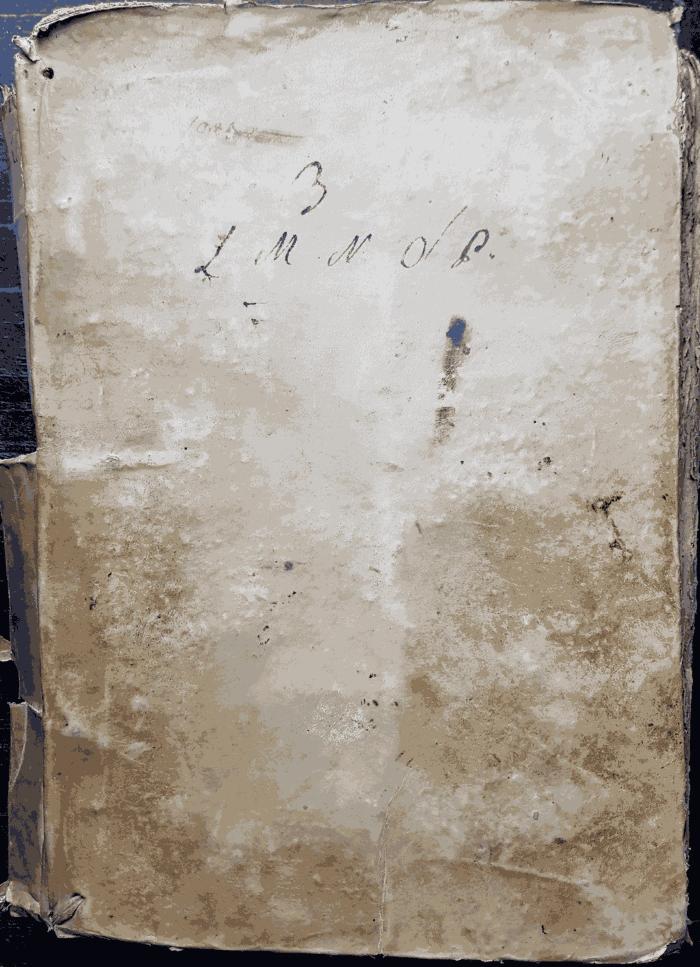 3
L M N O P.